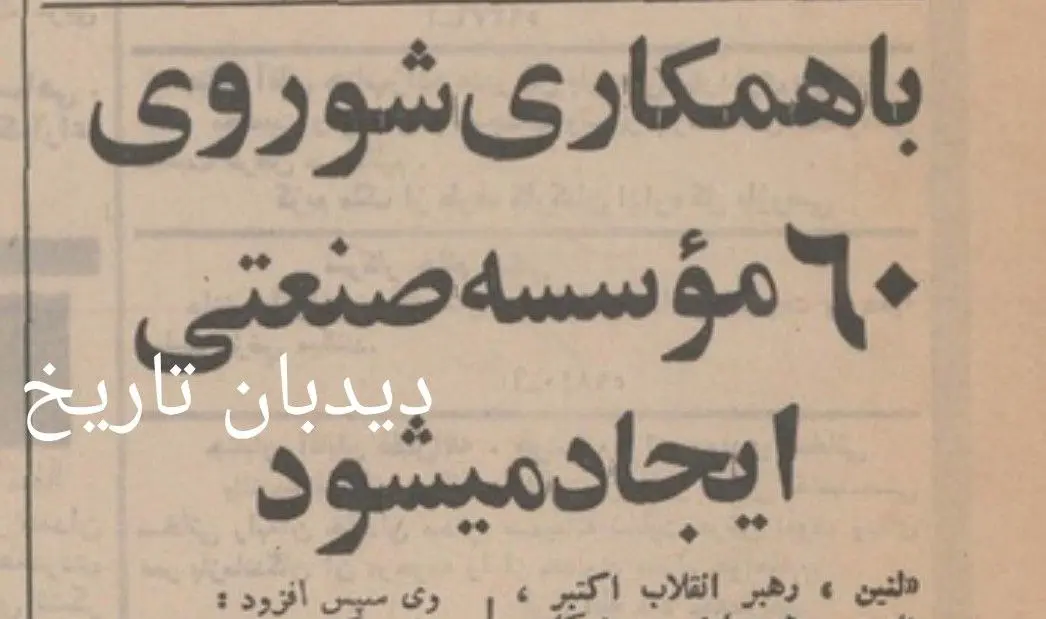 باهمکاری شوروی
۶۰ مؤسسه صنعتی
دیدبان تاریخ
ایجاد میشود
«لنین ، رهبر انقلاب اکتبر ،
وی سپس افزود :